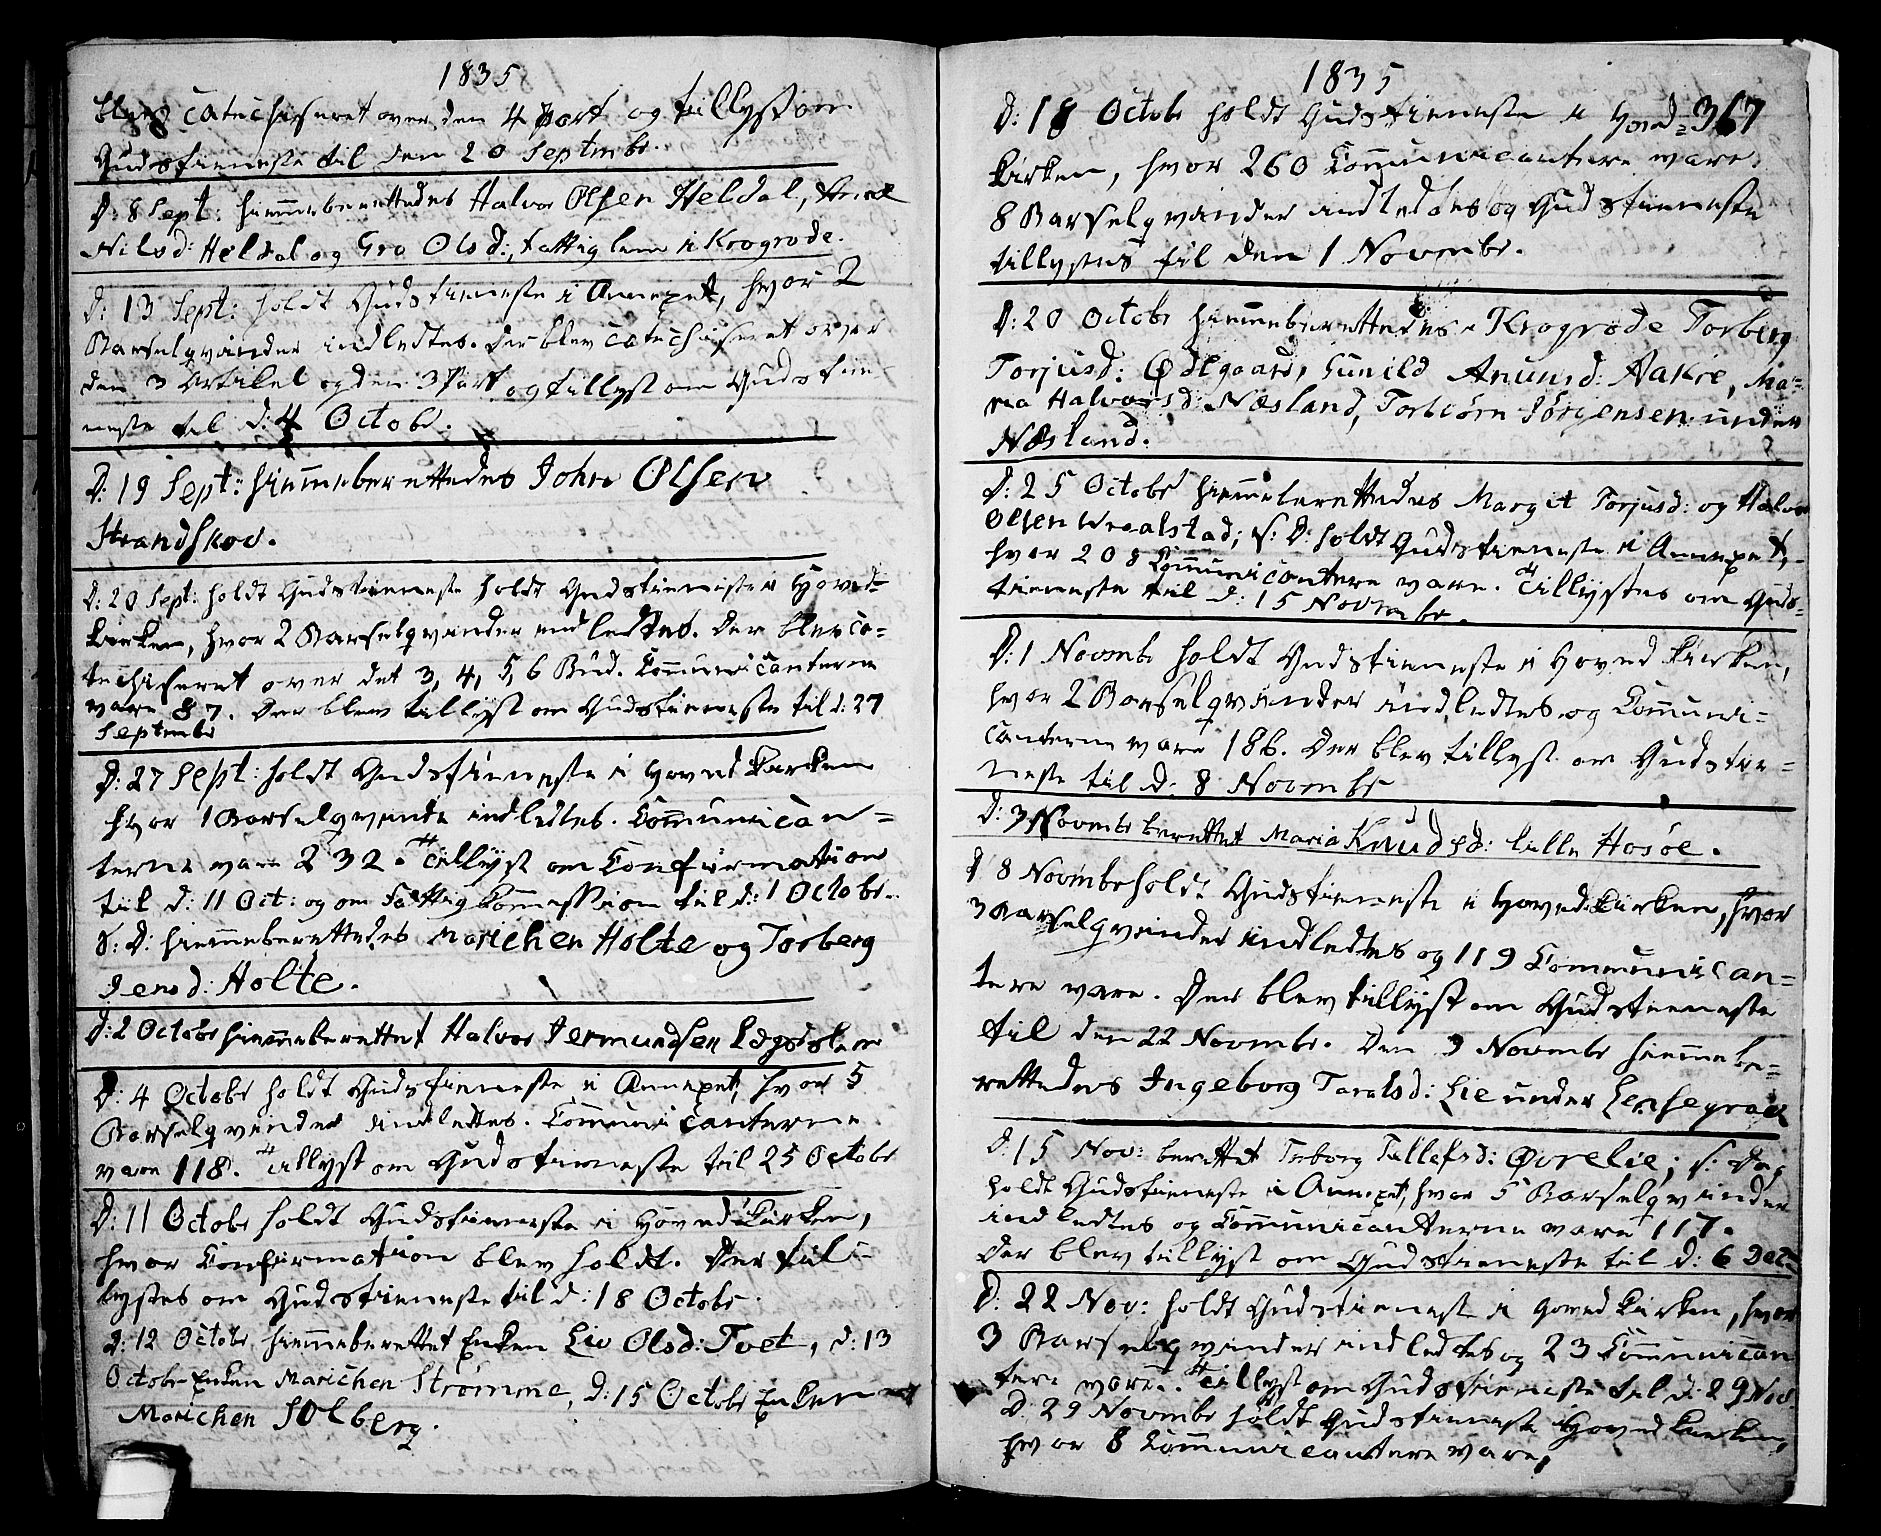 1835
blev catechiseret over den 4 Part og tillyst om
Gudstieneste til den 20 Septembr.
D: 8 Sept: hiemmeberettedes Halvor Olsen Heldal,
Nilsd: Heldal og Gro Olsd:, fattiglem i Krogrode.
D: 13 Sept: holdt Gudstieneste i Annexet, hvor 2
Barselqvinder indledtes. Der blev catechiseret over
den 3 Artikel og den 3 Part og tillyst om Gudstie-
neste til d: 4 Octobr.
D: 19 Sept: hiemmeberettedes John Olsen
Strandskov.
D: 20 Sept: holdt Gudstieneste holdt Gudstieneste i Hoved-
kirken, hvor 2 Barselqvinder indledtes. Der blev ca=
techiseret over det 3, 4, 5, 6 Bud. Communicanterne
vare 87. Der blev tillyst om Gudstieneste til d: 27
Septembr
D: 27 Sept: holdt Gudstieneste i Hovedkirken
hvor 1 Barselqvinde indledtes. Communican=
terne vare 232. Tillyst om Confirmation
til d: 11 Oct: og om Fattig Commission til d: 1 Octobr.
S: D: hiemmeberettedes Marichen Holte og Torberg
Jensd: Holte.
D: 2 Octobr hiemmeberettet Halvor Jermundsen
D: 4 Octobr holdt Gudstieneste i Annexet, hvor 5
Barselqvinder indledtes. Communicanterne
vare 118. Tillyst om Gudstieneste til 25 Octobr
D: 11 Octobr holdt Gudstieneste i Hovedkirken,
hvor Confirmation blev holdt. Der til-
lystes om Gudstieneste til d: 18 Octobr.
D: 12 Octobr hiemmeberettet Enken Liv Olsd: Tvet, d: 13
Octobr Enken Marichen Strømme, d: 15 Octobr Enken
Marichen Solberg.
1835
367
D: 18 Octobr holdt Gudstieneste i Hoved=
kirken, hvor 260 Communicantere vare.
8 Barselqvinder indledtes og Gudstieneste
tillystes til den 1 Novembr.
D: 20 Octobr hiemmeberettedes i Krogrøde Torberg
Torjusd: Ødegaard, Gunild Anunsd: Aakre, Ma=
ria Halvorsd: Næsland, Torbiørn Jørgensen under
Næsland.
D: 25 Octobr hiemmeberettedes Margit Torjusd: og Halvor
Olsen Wraalstad; S: D: holdt Gudstieneste i Annexet,
hvor 208 Communicantere vare. Tillystes om Guds-
tieneste til d: 15 Novembr.
D: 1 Novmbr holdt Gudstieneste i Hovedkirken,
hvor 2 Barselqvinder indledtes og Communi=
canterne vare 186. Der blev tillyst om Gudstie=
neste til d: 8 Novmbr
D: 3 Novmbr berettet Maria Knudsd: lille Hosøe.
D 8 Novmbr holdt Gudstieneste i Hovedkirken, hvor
3 Barselqvinder indledtes og 119 Communican=
tere vare. Der blev tillyst om Gudstieneste
til den 22 Novmbr. Den 9 Novmbr hiemmebe=
rettedes Ingeborg Taralsd: Lie under
D: 15 Nov: berettet Torborg Tellefsd: Øvrelie; s: Dag
holdt Gudstieneste i Annexet, hvor 5 Barselqvinder
indledtes og Communicanterne vare 117.
Der blev tillyst om Gudstieneste til d: 6 Dec:
D: 22 Nov: holdt Gudstieneste i Hovedkirken, hvor
3 Barselqvinder indledtes og 23 Communican
tere vare. Tillyst om Gudstieneste til d: 29 Nov.
D. 29 Novmbr holdt Gudstieneste i Hovedkirken,
hvor 8 Communicantere vare,